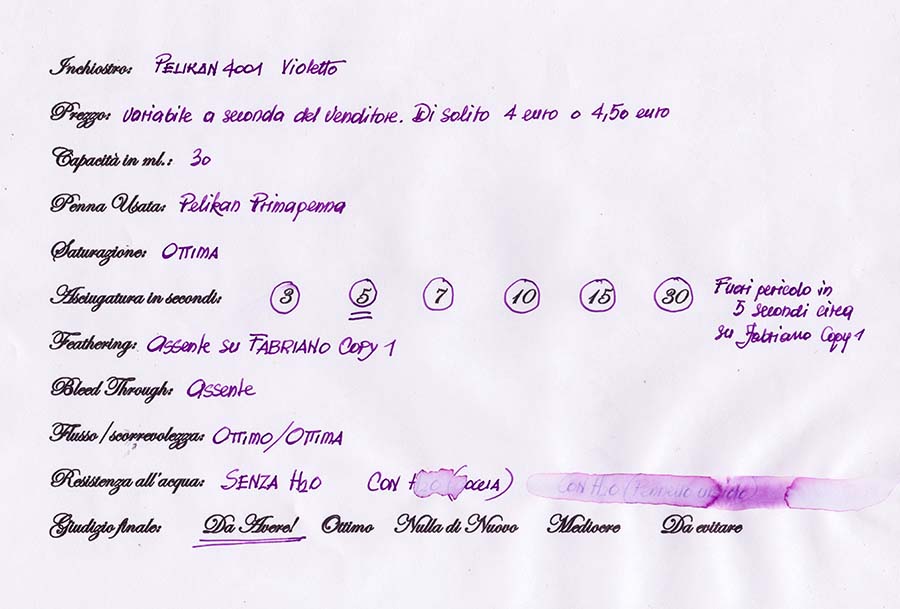 Inchiostro: PELIKAN 4001 Violetto
Prezzo: variabile a seconda del venditore. Di solito 4 euro o 4,50 euro
Capacità in ml.: 30
Penna Usata: Pelikan Primapenna
Saturazione: OTTIMA
Asciugatura in secondi: 3 5 7 10 15 30
Fuori pericolo in
5 secondi circa
su Fabriano Copy 1
Feathering: Assente su FABRIANO COPY 1
Bleed Through: Assente
Flusso / scorrevolezza: OTTIMO/OTTIMA
Resistenza all'acqua: SENZA H2O CON H2O (GOCCIA) CON H2O (Pennello umido)
Giudizio finale: Da Avere! Ottimo Nulla di Nuovo Mediocre Da evitare